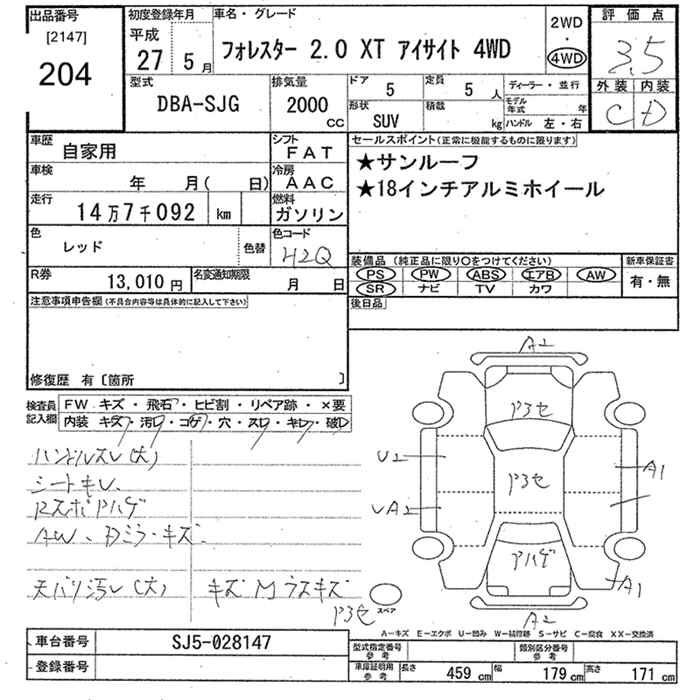 出品番号
[2147]
204
初度登録年月
平成
27 5月
車名・グレード
フォレスター 2.0 XT アイサイト 4WD
2WD
・
4WD
評価点
3.5
外装 内装
C D
型式
DBA-SJG
排気量
2000
CC
ドア
5
定員
5 人
ディーラー・並行
形状
SUV
積載
kg
モデル年式 年
ハンドル 左・右
車歴
自家用
シフト
FAT
車検
年 月( 日)
冷房
AAC
走行
14万7千092 km
燃料
ガソリン
色
レッド
色替
色コード
H2Q
R券
13,010 円
名変通知期限
月 日
セールスポイント(正常に機能するものに限ります)
★サンルーフ
★18インチアルミホイール
装備品 (純正品に限り○をつけてください)
新車保証書
PS PW ABS エアB AW
SR ナビ TV カワ
有・無
後日品
注意事項申告欄(不具合内容等は具体的に記入して下さい)
修復歴 有〔箇所 〕
検査員記入欄
FW キズ・飛石・ヒビ割・リペア跡・×要
内装 キズ・汚レ・コゲ・穴・スレ・キレ・破レ
ハンドルスレ(大)
シートキレ、
Rスポイアハゲ
AW、Dミラーキズ
天バリ汚レ(大)
キズ M ウスキズ
アヨセ
A2
アヨセ
U2
アヨセ
A1
UA2
アハゲ
A1
A2
スペア
A−キズ E−エクボ U−凹み W−補修跡 S−サビ C−腐食 XX−交換済
車台番号
SJ5-028147
登録番号
型式指定番号
参考
類別区分番号
参考
車庫証明用
参考
長さ
459 cm
幅
179 cm
高さ
171 cm